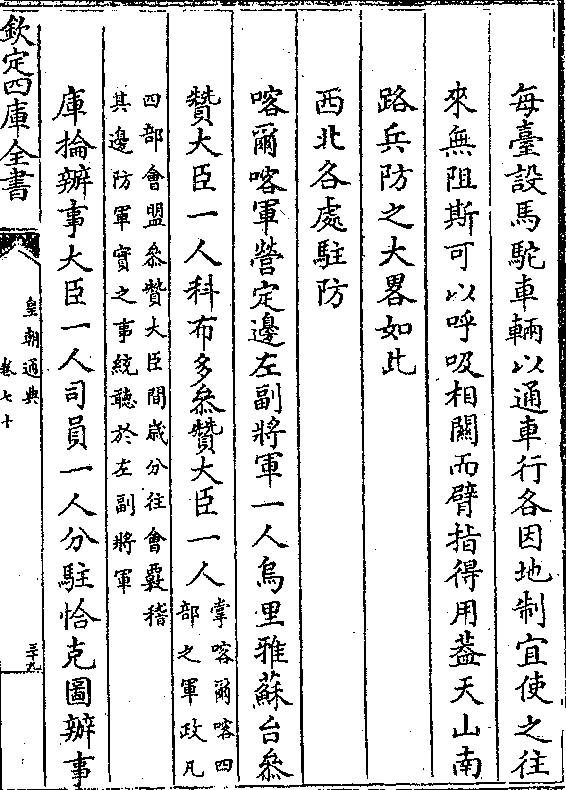 每臺設馬駝車輛以通車行各因地制宜使之往
來無阻斯可以呼吸相關而臂指得用蓋天山南
路兵防之大畧如此
西北各處駐防
喀爾喀軍營定邊左副將軍一人烏里雅蘇台叅
贊大臣一人科布多叅贊大臣一人掌喀爾喀四
部之軍政凡
四部會盟叅贊大臣間歲分往會覈稽
其邊防軍實之事統聽於左副將軍
庫掄辦事大臣一人司員一人分駐恰克圖辦事
欽定四庫全書
皇朝通典
卷七十
三十九